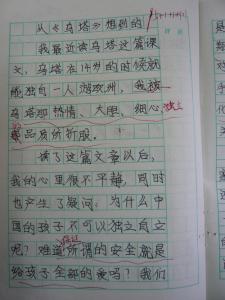 从《乌塔》想到的
我最近读乌塔这篇课
文，乌塔在14岁的时候就
能独自一人游欧洲，我被
乌塔那热情、大胆、细心、独立
品质所折服。
读了这篇文章以后，
我的心里很不平静，同时
也产生了疑问：为什么中
国的孩子不可以独立自立
呢？难道所谓的安全就是
给孩子全部的爱吗？我们